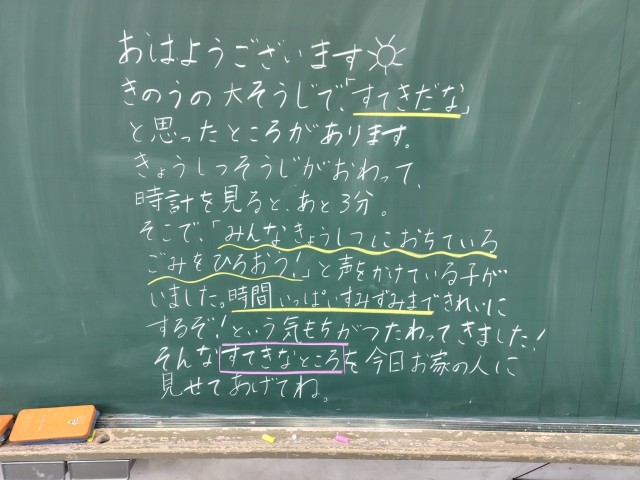 おはようございます
きのうの大そうじで、「すてきだな」
と思ったところがあります。
きょうしつそうじがおわって、
時計を見ると、あと3分。
そこで、「みんなきょうしつにおちている
ごみをひろおう!」と声をかけている子が
いました。時間いっぱいすみずみまできれいに
するぞ!という気もちがつたわってきました!
そんなすてきなところを今日お家の人に
見せてあげてね。